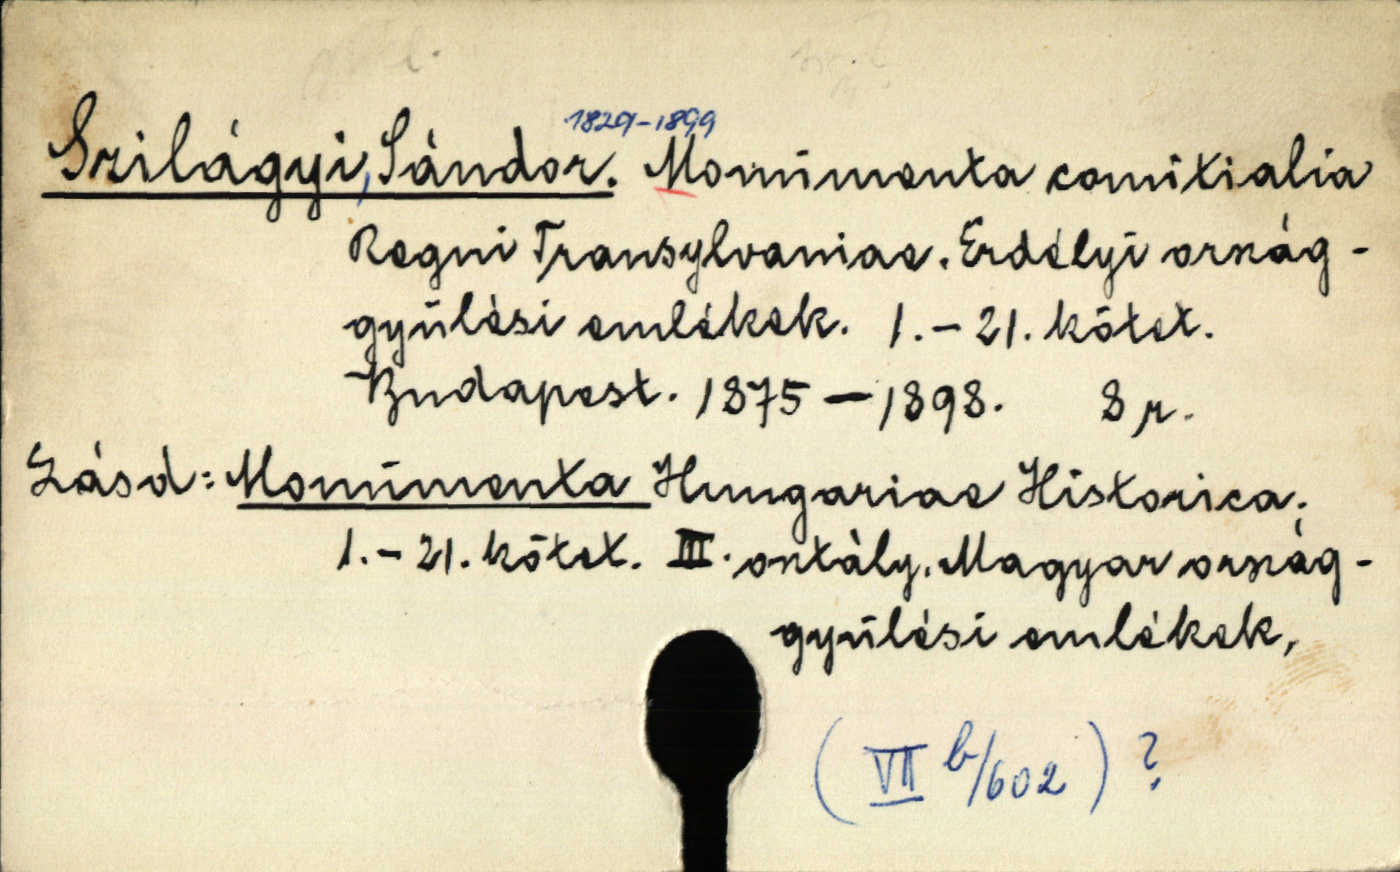 1829-1899
Szilágyi, Sándor. Monimenta comitialia
Regni Transylvaniae. Erdélyi ország-
gyűlési emlékek. 1.-21. kötet.
Budapest. 1875-1898. 8 r.
Lásd: Monimenta Hungariae Historica.
1.-21. kötet. III. osztály. Magyar ország-
gyűlési emlékek,
(VII b/602) ?